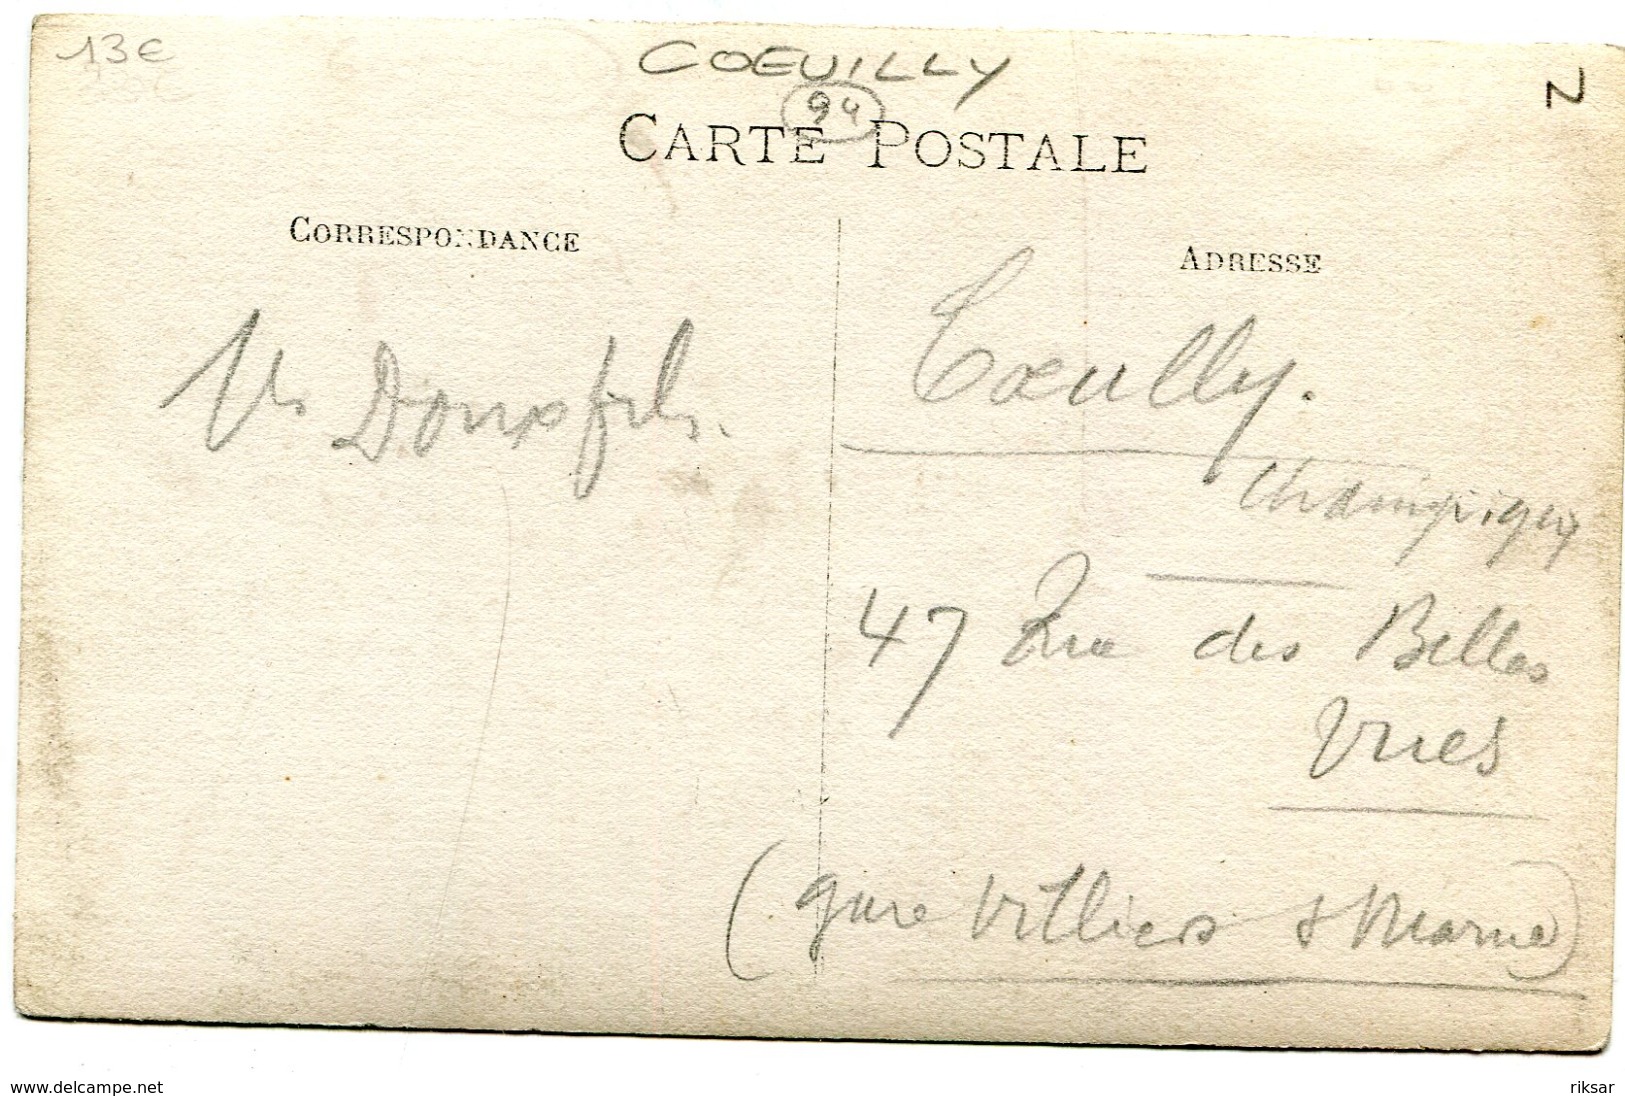 13€
COEUILLY
N
94
CARTE POSTALE
CORRESPONDANCE
ADRESSE
Cœuilly.
Champigny
47 Rue des Belles
Vues
(gare Villiers s Marne)
www.delcampe.net
riksar